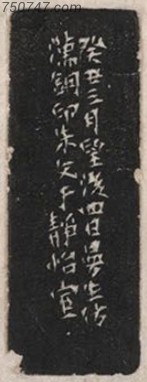 750747.com
癸丑三月望後四日夢坐仿
漢銅印朱文于靜怡室